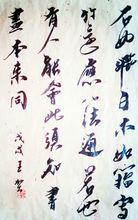 石如飛白木如籀寫
竹還應八法通若也
有人能會此須知書
畫本來同
戊戌王